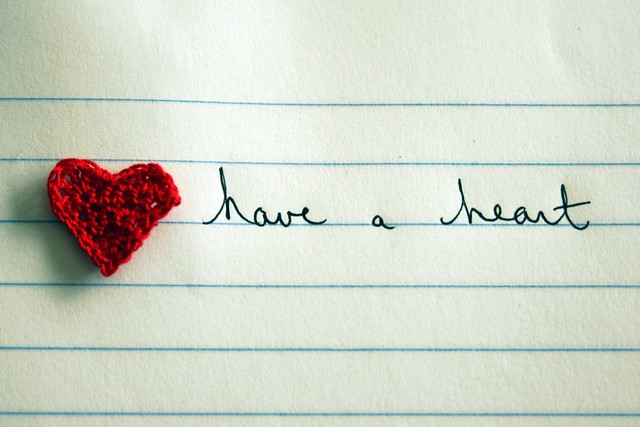 have a heart